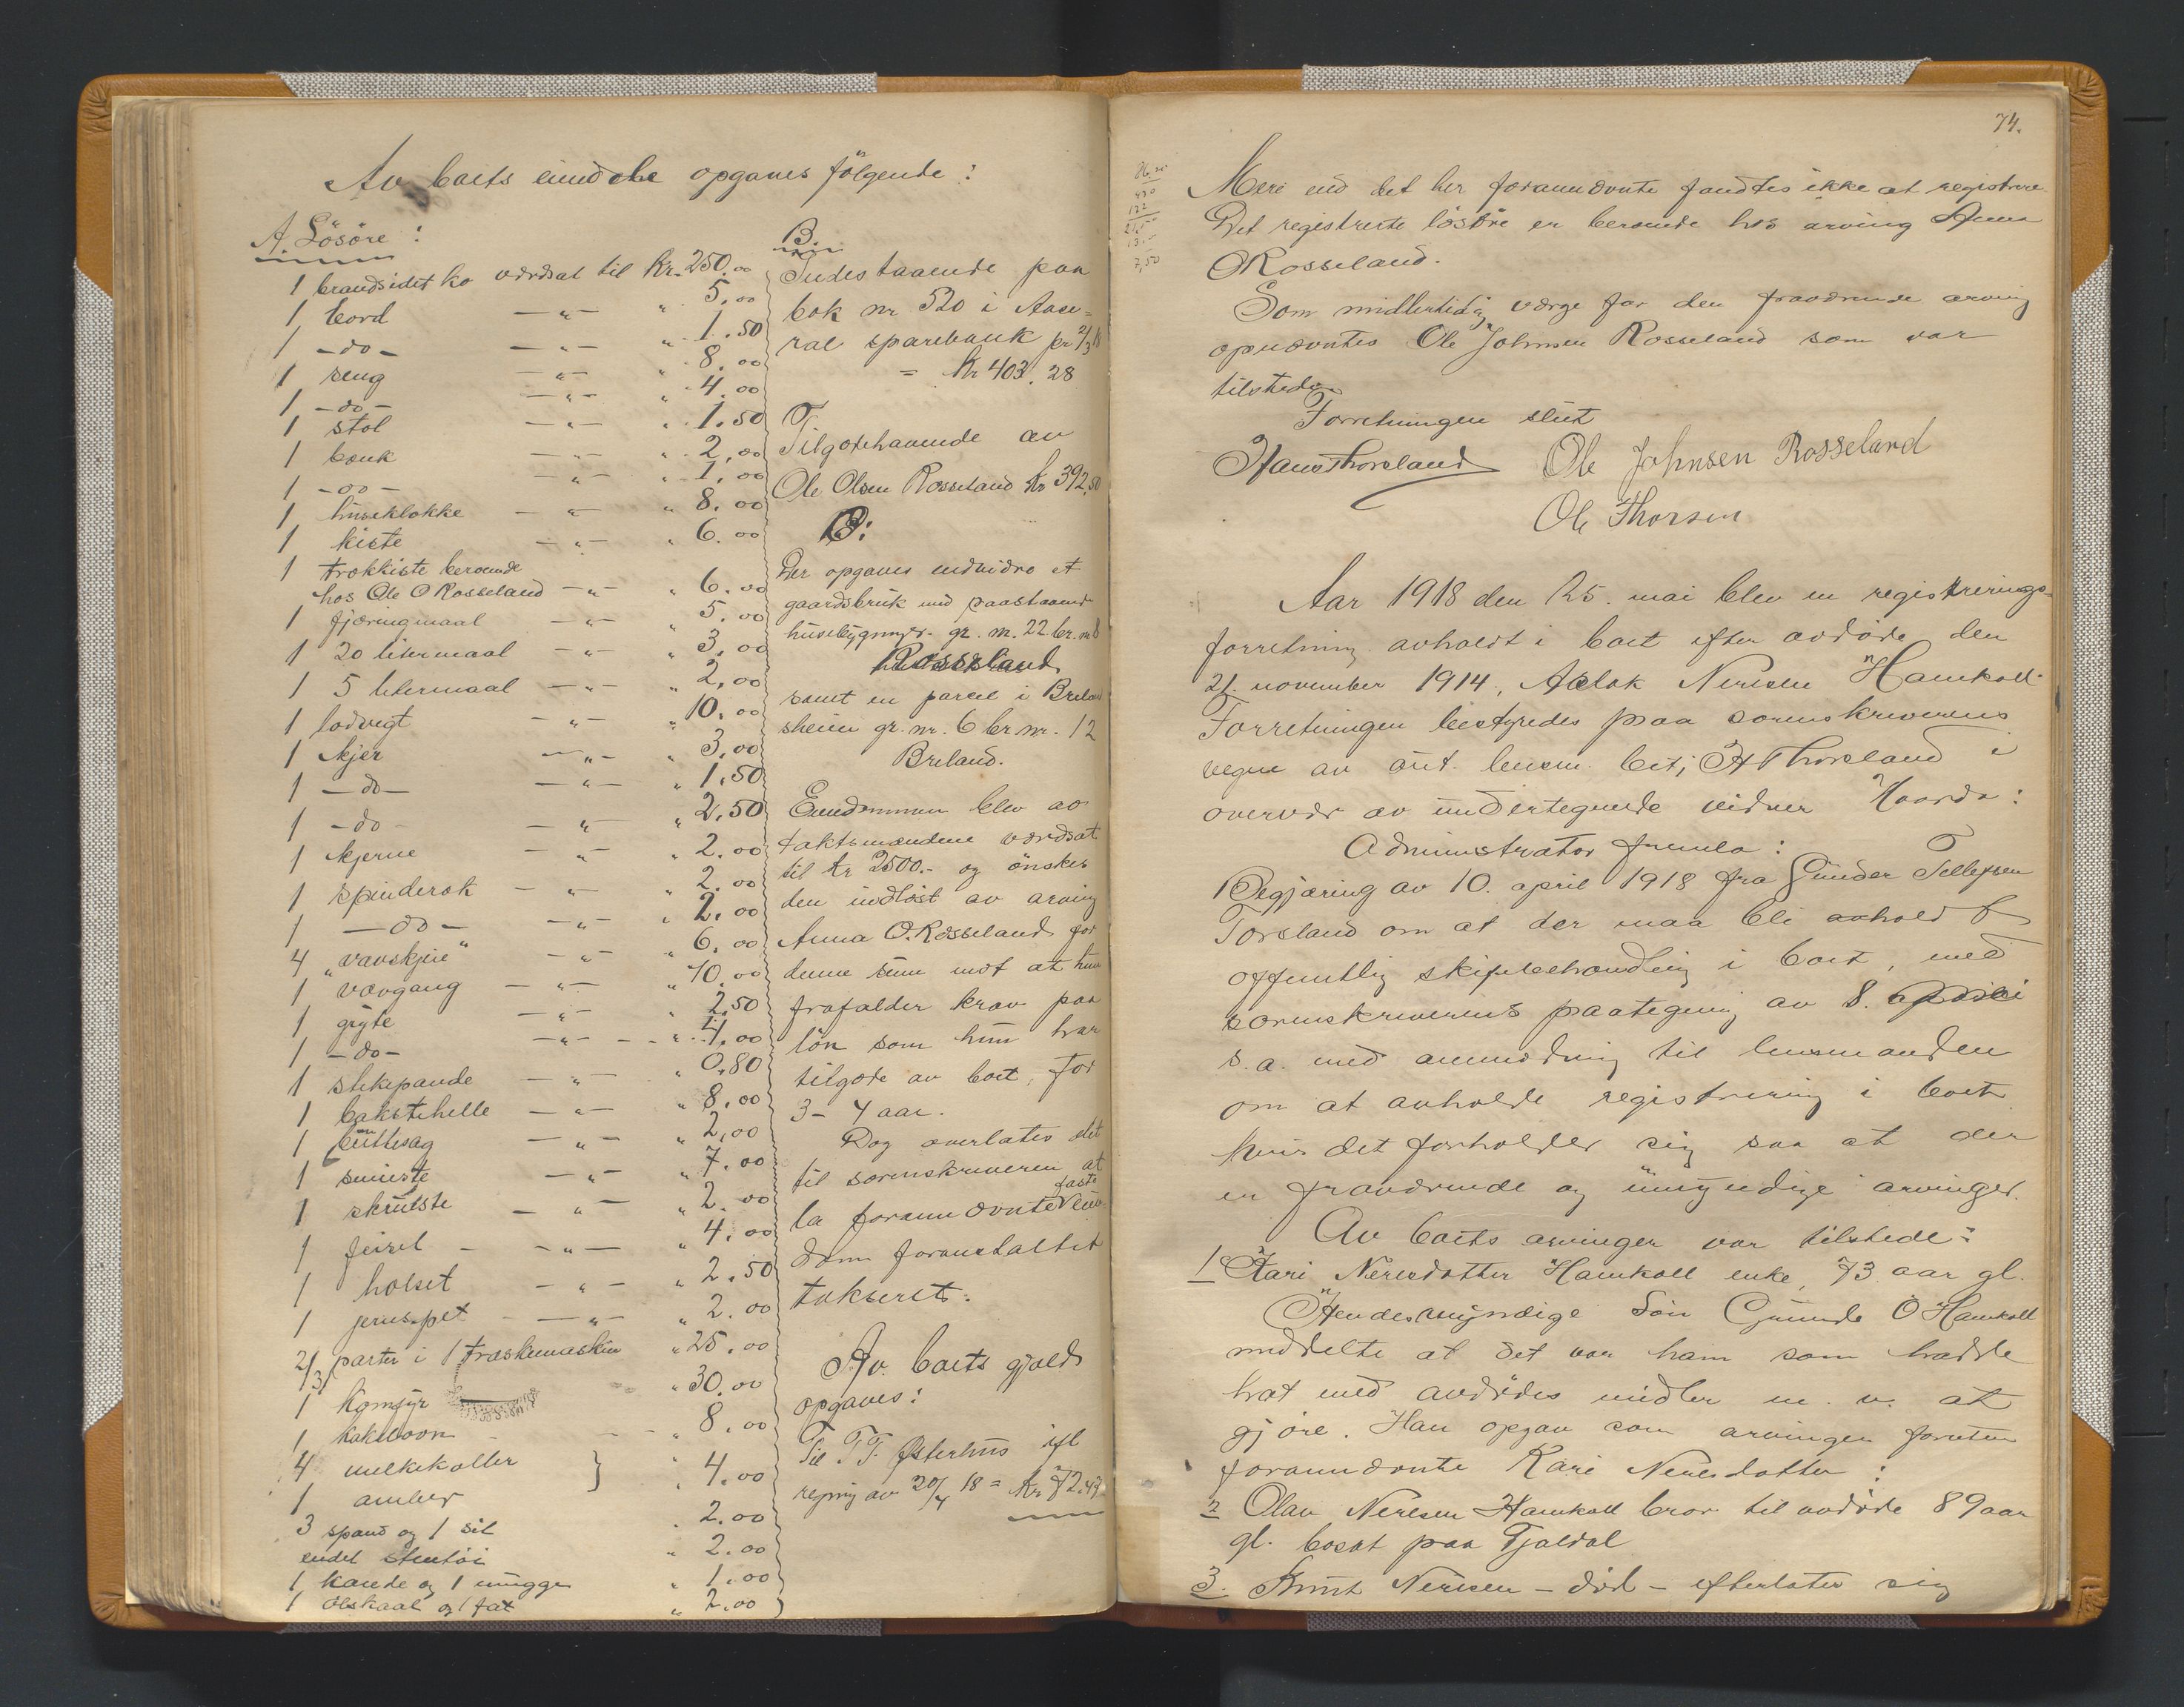 Av boets eiendele opgaves følgende:
A. Løsøre:
1 brandsidet ko værdsat til Kr. 250.00
1 bord —"— " 5.00
1 -do- —"— " 1.50
1 seng —"— " 8.00
1 -do- —"— " 4.00
1 stol —"— " 1.50
1 bænk —"— " 2,00
1 -do- —"— " 1,00
1 huseklokke —"— " 8.00
1 kiste —"— " 6.00
1 trækkiste beroende
hos Ole O Rosseland —"— " 6.00
1 fjæringmaal —"— " 5.00
1 20 litermaal —"— " 3,00
1 5 litermaal —"— " 2,00
1 lodvegt —"— " 10.00
1 kjer —"— " 3,00
1 -do- —"— " 1,50
1 -do- —"— " 2,50
1 kjerne —"— " 2.00
1 spinderok —"— " 2.00
1 -do- —"— " 2.00
4 "vavskjeie" —"— " 6.00
1 vævgang —"— " 10.00
1 gryte —"— " 2.50
1 -do- —"— " 4,00
1 stekepande —"— " 0,80
1 bakstehelle —"— " 8.00
1 buttesag —"— " 2,00
1 smieste —"— " 7.00
1 skrutste —"— " 2.00
1 feisel —"— " 4.00
1 holset —"— " 2.50
1 jernspet —"— " 2.00
2/3 parter i 1 træskemaskin " 25.00
1 Komfyr " 30.00
1 kakkelovn " 8.00
4 melkekoller }
1 amber " 4.00
3 spand og 1 sil " 2.00
endel stentøi " 2.00
1 karede og 1 mugge " 1.00
1 ølskaal og 1 fat " 2.00
B.
Indestaaende paa
bok nr 520 i Aase-
ral sparebank pr 2/3 18
= Kr 403.28
Tilgodehavende av
Ole Olsen Rosseland Kr 392,50
B:
Der opgaves endvidre et
gaardsbruk med paastaaende
husebygninger. gr. nr. 22 br. nr 8
Rosseland
samt en parcel i Breland
sheien gr. nr. 6 br nr. 12
Breland.
Eiendommen blev av
takstmændene værdsat
til kr 2500.- og ønskes
den indløst av arving
Anna O. Rosseland for
denne sum mot at hun
frafalder krav paa
løn som hun har
tilgode av boet, for
3-4 aar.
Dog overlates det
til sorenskriveren at
la forannævnte faste eien-
dom foranstaltet
takseret.
Av boets gjæld
opgaves:
Til T. T. Østerhus ifl
regning av 20/4 18 = Kr 72.43
74.
Mere end det her forannævnte fandtes ikke at registrere
Det registrerte løsøre er beroende hos arving Anna
O Rosseland.
Som midlertidig værge for den fraværende arving
opnævntes Ole Johnsen Rosseland som var
tilstede.
Forretningen slut
Hans Thorsland Ole Johnsen Rosseland
Ole Thorsen
Aar 1918 den 25. mai blev en registrerings-
forretning avholdt i boet efter avdøde den
21. november 1914, Aslak Nerisen Hamkoll.
Forretningen bestyredes paa sorenskriverens
vegne av aut. lensm. betj H Thorsland i
overvær av undertegnede vidner Haarda:
Administrator fremla:
Begjæring av 10. april 1918 fra Gunder Tellefsen
Torsland om at der maa bli avholdt
offentlig skiftebehandling i boet, med
sorenskriverens paategning av 8. april
s. a. med anmodning til lensmanden
om at avholde registrering i boet
hvis det forholder sig saa at der
er fraværende og umyndige arvinger.
Av boets arvinger var tilstede:
1 Kari Nerisdotter Hamkoll enke, 73 aar gl.
Hendes myndige søn Gunde O Hamkoll
meddelte at det var ham som hadde
hat med avdødes midler m. v. at
gjøre. Han opgav som arvinger foruten
forannævnte Kari Nerisdotter:
2 Olav Nerisen Hamkoll bror til avdøde 89 aar
gl. bosat paa Tjaldal
3. Knut Nerisen - død - efterlater sig